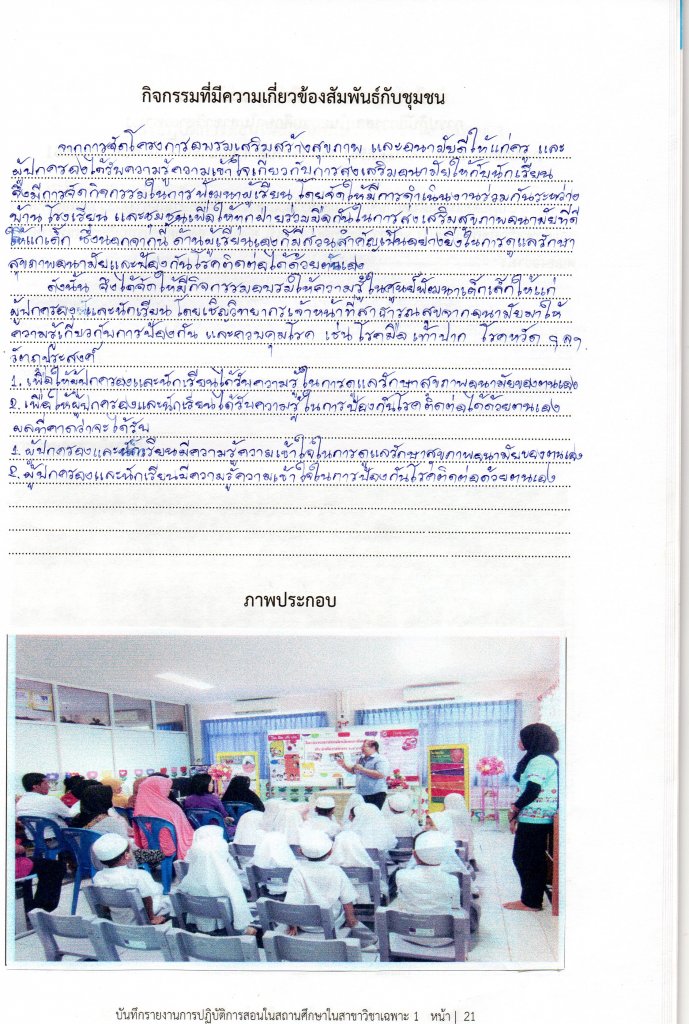 กิจกรรมที่มีความเกี่ยวข้องสัมพันธ์กับชุมชน
จากการจัดโครงการอบรมเสริมสร้างสุขภาพ และอนามัยดีให้แก่ครู และ
ผู้ปกครองได้รับความรู้ความเข้าใจเกี่ยวกับการส่งเสริมอนามัยให้กับนักเรียน
จึงมีการจัดกิจกรรมในการพัฒนาผู้เรียน โดยจัดให้มีการดำเนินงานร่วมกันระหว่าง
บ้าน โรงเรียน และชุมชนเพื่อให้ทุกฝ่ายร่วมมือกันในการส่งเสริมสุขภาพอนามัยที่ดี
ให้แก่เด็ก ซึ่งนอกจากนี้ ด้านผู้เรียนเองก็มีส่วนสำคัญเป็นอย่างยิ่งในการดูแลรักษา
สุขภาพอนามัยและป้องกันโรคติดต่อได้ด้วยตนเอง
ดังนั้น จึงได้จัดให้มีกิจกรรมอบรมให้ความรู้ในศูนย์พัฒนาเด็กเล็กให้แก่
ผู้ปกครองและนักเรียน โดยเชิญวิทยากรเจ้าหน้าที่สาธารณสุขจากอนามัยมาให้
ความรู้เกี่ยวกับการป้องกัน และควบคุมโรค เช่น โรคมือ เท้า ปาก โรคหวัด ฯลฯ
วัตถุประสงค์
1. เพื่อให้ผู้ปกครองและนักเรียนได้รับความรู้ในการดูแลรักษาสุขภาพอนามัยของตนเอง
2. เพื่อให้ผู้ปกครองและนักเรียนได้รับความรู้ในการป้องกันโรคติดต่อได้ด้วยตนเอง
ผลที่คาดว่าจะได้รับ
1. ผู้ปกครองและนักเรียนมีความรู้ความเข้าใจในการดูแลรักษาสุขภาพอนามัยของตนเอง
2. ผู้ปกครองและนักเรียนมีความรู้ความเข้าใจในการป้องกันโรคติดต่อด้วยตนเอง
ภาพประกอบ
บันทึกรายงานการปฏิบัติการสอนในสถานศึกษาในสาขาวิชาเฉพาะ 1 หน้า | 21